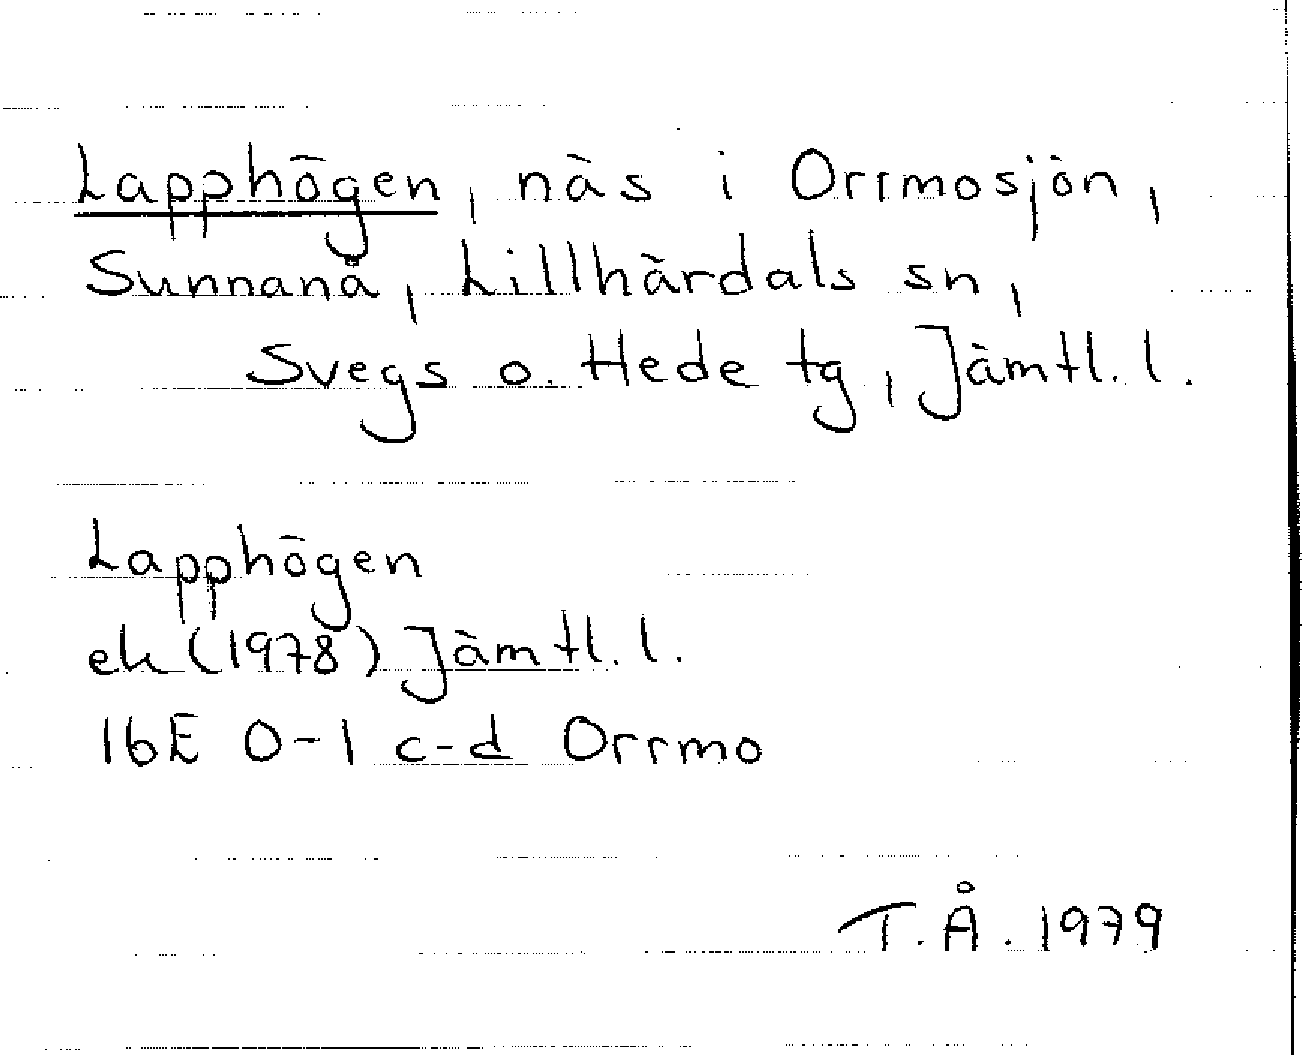 Lapphögen, näs i Orrmosjön,
Sunnanå, Lillhärdals sn,
Svegs o. Hede tg, Jämtl. l.
Lapphögen
ek (1978) Jämtl. l.
16E 0-1 c-d Orrmo
T.Å. 1979